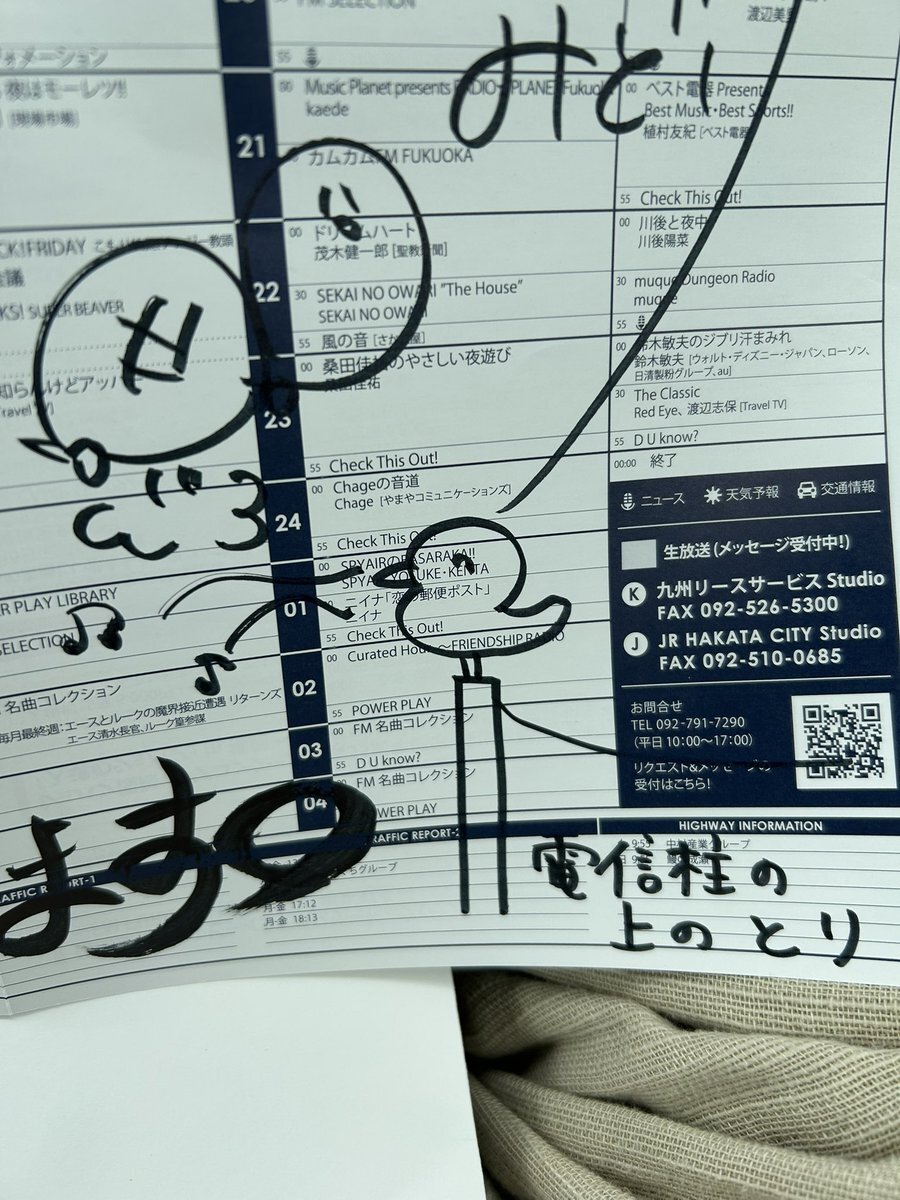 FM SELECTION
渡辺美里
フォメーション
55
夜はモーレツ!!
[現場市場]
00 Music Planet presents RADIO PLANET Fukuoka
kaede
00 ベスト電器 Presents
Best Music・Best Sports!!
植村友紀 [ベスト電器]
21
カムカムFM FUKUOKA
55 Check This Out!
00 ドリームハート
茂木健一郎 [聖教新聞]
00 川後と夜中
川後陽菜
教頭
会議
22
30 SEKAI NO OWARI "The House"
SEKAI NO OWARI
30 muque Dungeon Radio
muque
SUPER BEAVER
55 風の音
55
00 桑田佳祐のやさしい夜遊び
桑田佳祐
00 鈴木敏夫のジブリ汗まみれ
鈴木敏夫 [ウォルト・ディズニー・ジャパン、ローソン、
日清製粉グループ、au]
知らんけどアッパー
Travel TV]
30 The Classic
Red Eye、渡辺志保 [Travel TV]
23
55 D U know?
00:00 終了
55 Check This Out!
00 Chageの音道
Chage [やまやコミュニケーションズ]
24
55 Check This Out!
00 SPYAIRのBASARAKA!!
SPYAIR YOSUKE・KENTA
ニイナ「恋の郵便ポスト」
ニイナ
01
55 Check This Out!
00 Curated Hour 〜FRIENDSHIP RADIO
ER PLAY LIBRARY
SELECTION
02
名曲コレクション
毎月最終週:エースとルークの魔界接近遭遇 リターンズ
エース清水長官、ルーク篁参謀
55 POWER PLAY
00 FM 名曲コレクション
03
55 D U know?
00 FM 名曲コレクション
04
POWER PLAY
ニュース 天気予報 交通情報
生放送 (メッセージ受付中!)
K 九州リースサービス Studio
FAX 092-526-5300
J JR HAKATA CITY Studio
FAX 092-510-0685
お問合せ
TEL 092-791-7290
(平日 10:00〜17:00)
リクエスト&メッセージの
受付はこちら!
TRAFFIC REPORT-2
HIGHWAY INFORMATION
AFFIC REPORT-1
月-金 17:12
月-金 18:13
9:55 中村産業グループ
みど
ます
電信柱の
上のとり